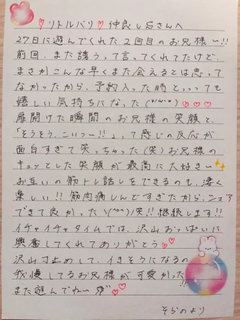 リトルパリ 仲良しさんへ
27日に遊んでくれた2回目のお兄様〜!!
前回、また誘うって言ってくれてたけど、
まさかこんな早くまた会えるとは思って
なかったから、予約入った時と・・・っても
嬉しい気持ちになった
扉開けた瞬間のお兄様の笑顔と、
「そうそう、こいつー!!」って感じの反応が
面白すぎて笑っちゃった(笑)お兄様の
キュッとした笑顔が最高に大好き〜
お互いの筋トレ話しをできるのも、凄く
楽しい!!筋肉痛しんどすぎたから、シェア
できて良かった 笑!!頑張します!!
イチャイチャタイムでは、沢山おっぱいに
興奮してくれてありがとう
沢山寸止めして、イきそうになるの
我慢してるお兄様が可愛かった
また遊んでねー
そらのより